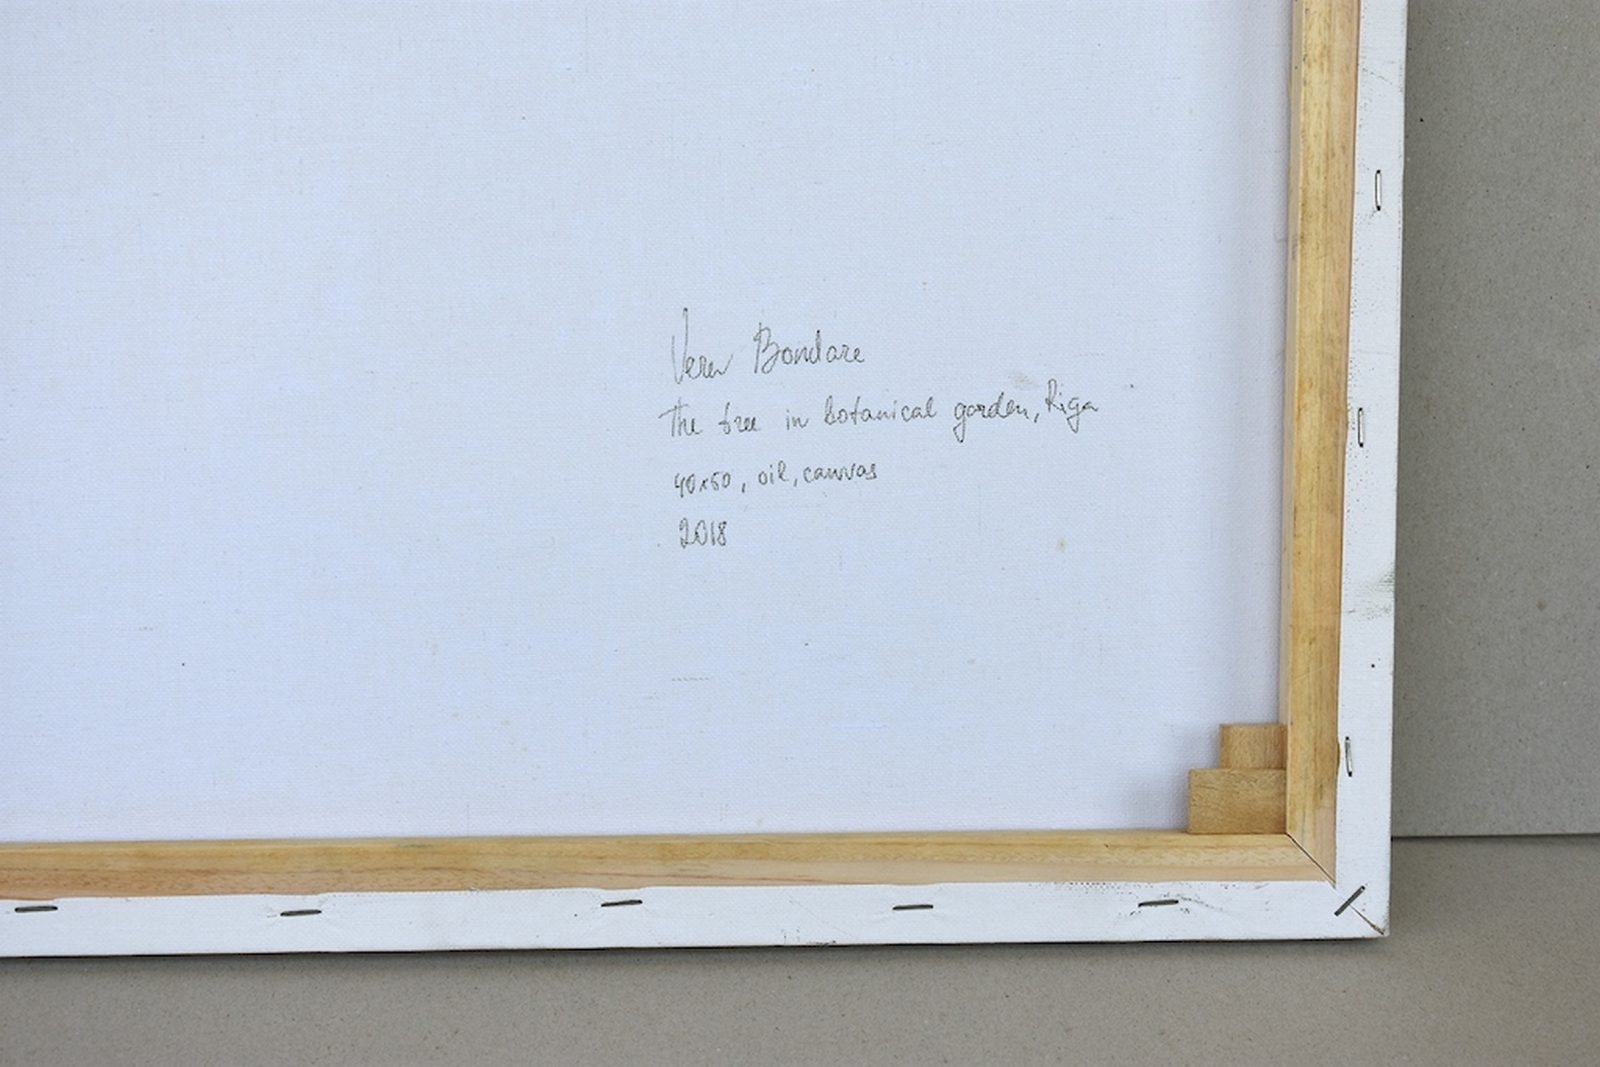 Vera Bondare
The tree in botanical garden, Riga
40x50, oil, canvas
2018